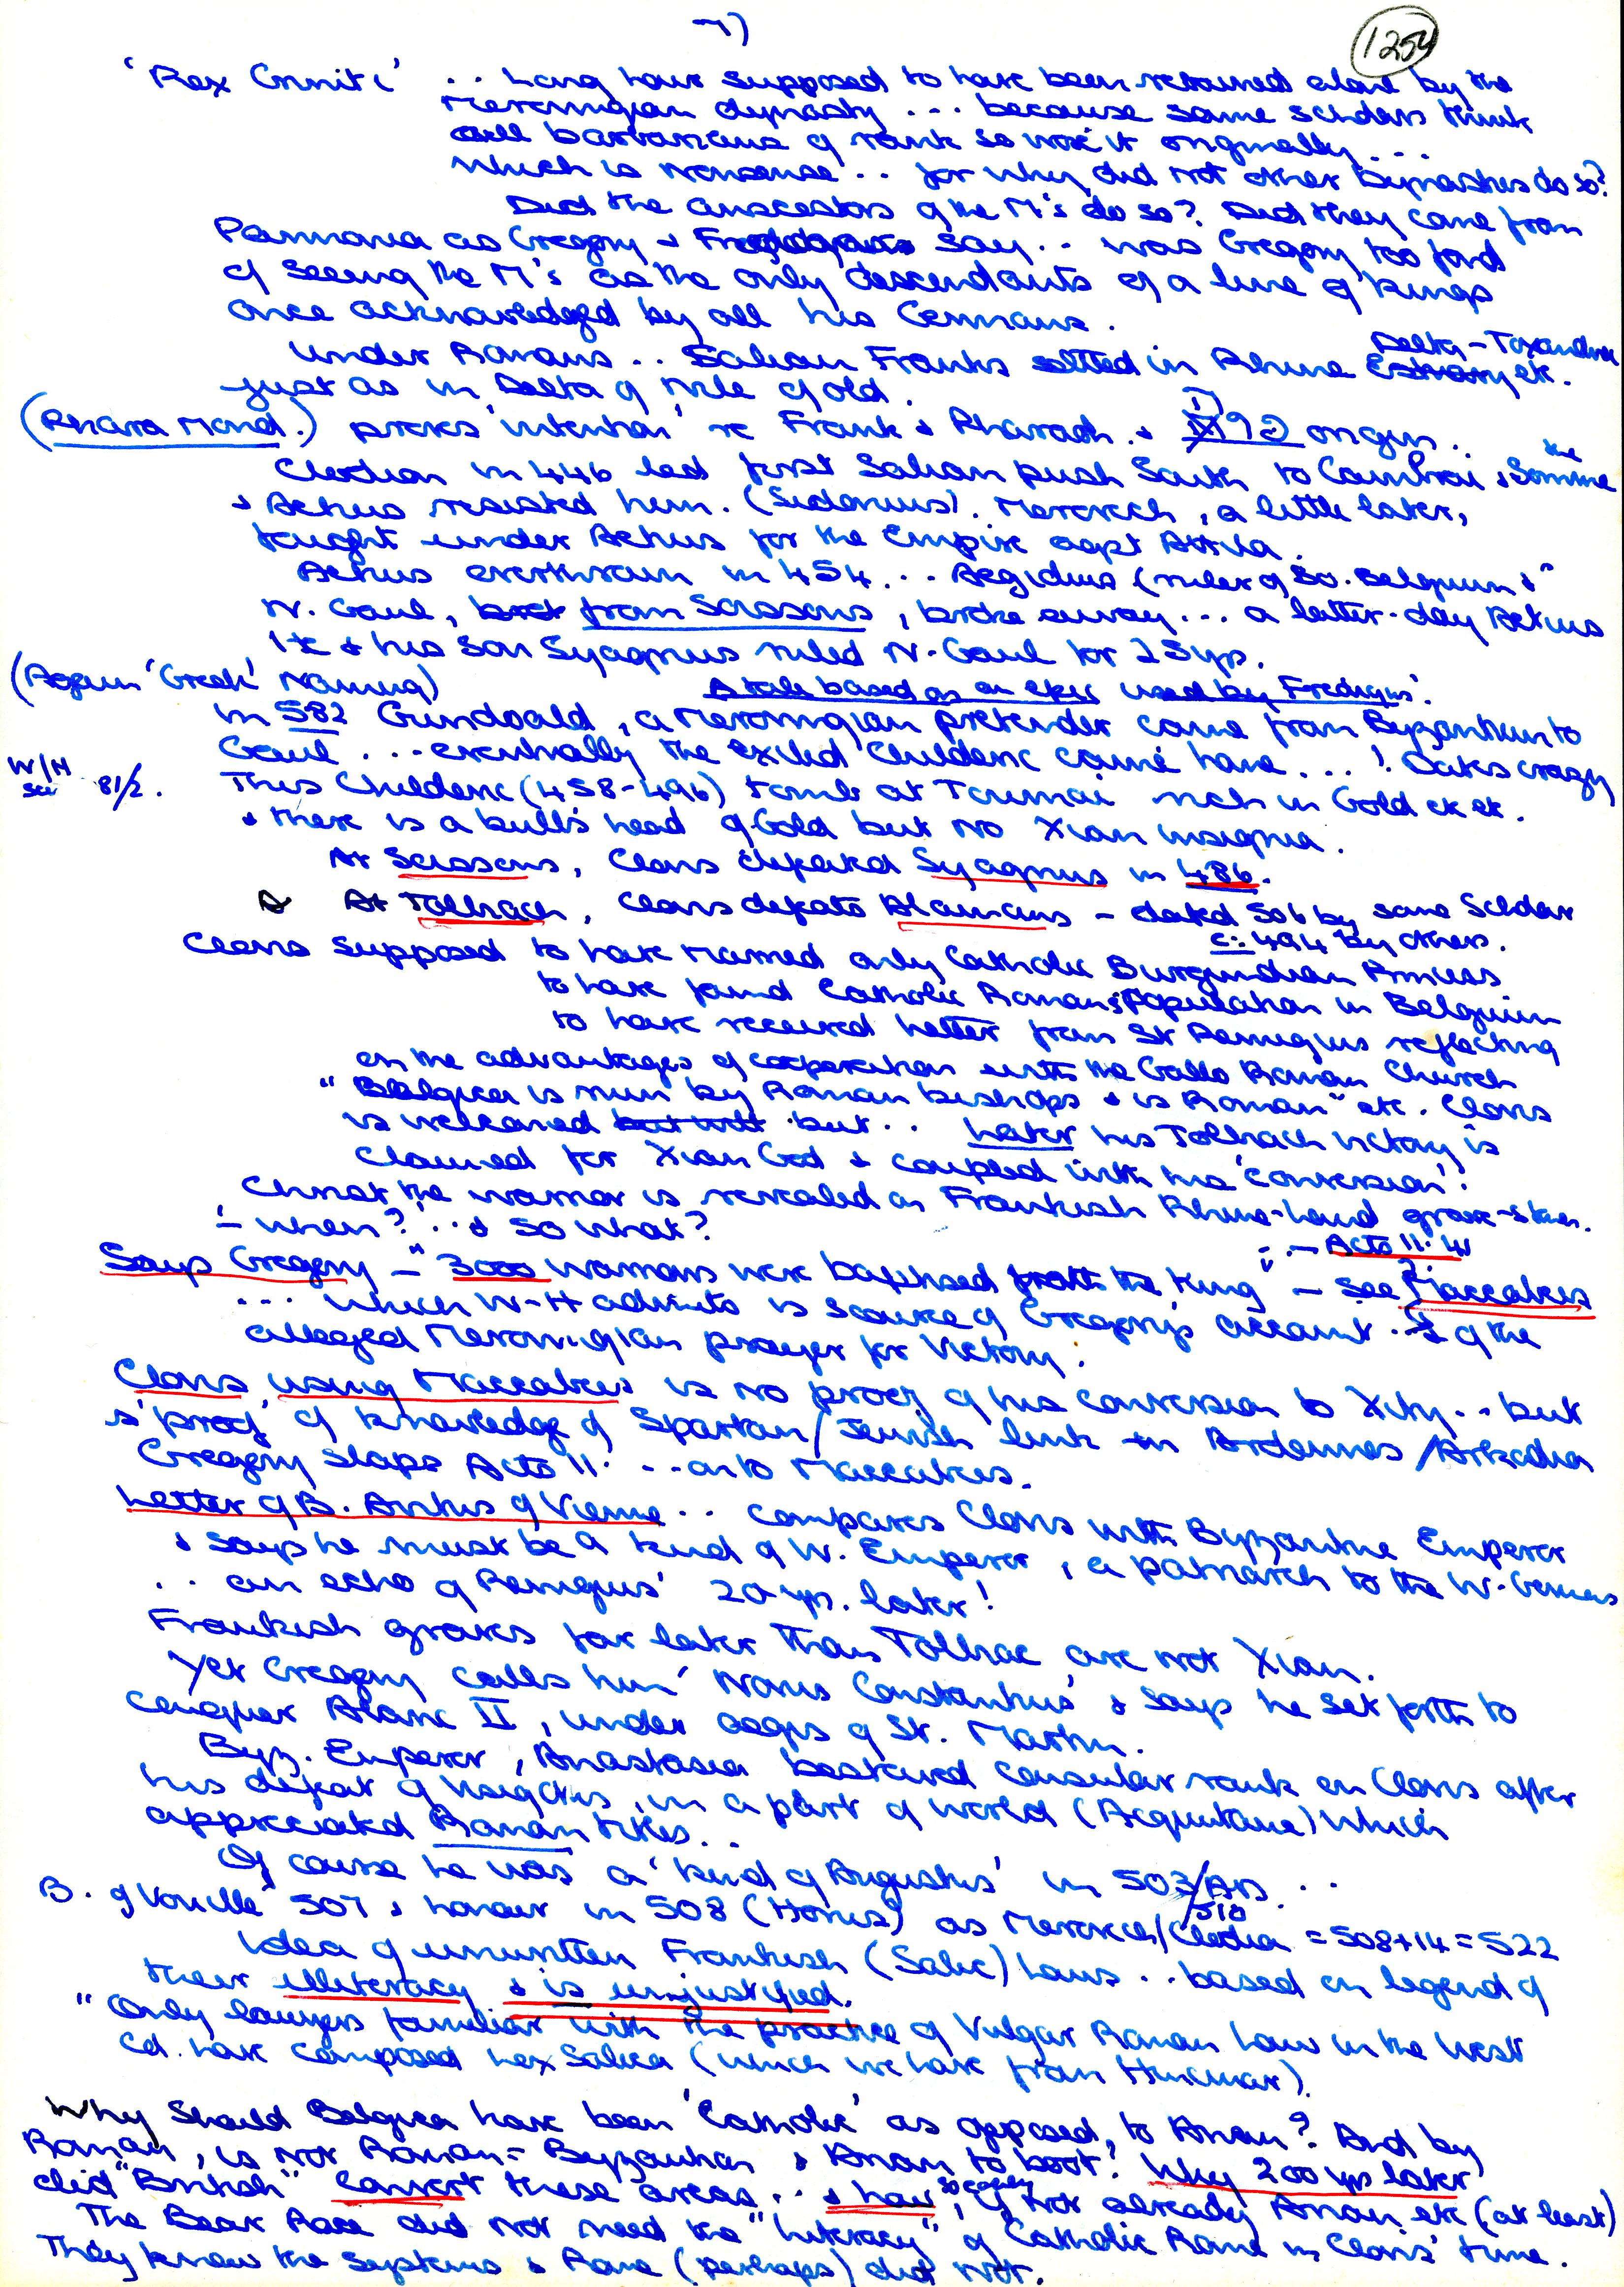 7)
1254
'Rex Criniti' .. Long hair supposed to have been retained alone by the
Merovingian dynasty ... because some scholars think
all barbarians of rank so wore it originally ...
which is nonsense .. for why did not other Dynasties do so?
Did the ancestors of the M's do so? Did they come from
Pannonia as Gregory & say .. was Gregory too fond
of seeing the M's as the only descendants of a line of kings
once acknowledged by all his Germans.
Delta - Toxandria
Under Romans .. Salian Franks settled in Rhine Estuary etc.
just as in Delta of Nile of old.
(Phara Mond.) proves 'intention' re Frank & Pharaoh . & origin ..
Clodion in 446 led first Salian push South to Cambrai & the Somme
& Aetius resisted him. (Sidonius). Merovech, a little later,
fought under Aetius for the Empire agst Attila.
Aetius overthrown in 454 ... Aegidius (ruler of So. Belgium &
N. Gaul, but from Soissons, broke away ... a latter-day Aetius
He & his son Syagrius ruled N. Gaul for 25 yrs.
(Again 'Greek' naming) A tale based on an epic used by Fredegus'.
in 582 Gundoald, a Merovingian pretender came from Byzantium to
Gaul ... eventually the exiled Childeric came home ... ! Dates crazy
W/H 81/2. This Childeric (458-496) tomb at Tournai rich in Gold etc etc.
& there is a bull's head of Gold but no Xian insignia.
At Soissons, Clovis defeated Syagrius in 486.
At Tolbiach, Clovis defeats Alamans - dated 506 by some Scholars
c. 494 by others.
Clovis supposed to have married only Catholic Burgundian Princess
to have found Catholic Roman Population in Belgium
to have received letter from St Remigius reflecting
on the advantages of cooperation with the Gallo Roman Church
"Belgica is run by Roman bishops & is Roman" etc. Clovis
is welcomed but with but .. Later his Tolbiach victory is
claimed for Xian God & coupled with his 'conversion'!
Christ the warrior is revealed in Frankish Rhine-land grave-stones.
'- when?' .. & so what?
.. - Acts 11. 41
Says Gregory - "3000 warriors were baptised with the King" - see Maccabees
... which W-H admits is source of Gregory's account .. & of the
alleged Merovingian prayer for Victory.
Clovis, using Maccabees is no proof of his conversion to Xity .. but
is 'proof' of knowledge of Spartan/Jewish link in Ardennes/Arkadia
Gregory slaps Acts 11. .. onto Maccabees.
Letter of B. Avitus of Vienne .. compares Clovis with Byzantine Emperor
& says he must be a kind of W. Emperor, a patriarch to the W. Germans
.. an echo of Remigius' 20 yrs. later!
Frankish graves far later than Tolbiac are not Xian.
Yet Gregory calls him 'Novus Constantinus' & says he set forth to
conquer Alaric II, under aegis of St. Martin.
Byz. Emperor, Anastasia bestowed consular rank on Clovis after
his defeat of Visigoths, in a part of world (Acquitaine) which
appreciated Roman titles ..
Of course he was a 'kind of Augustus' in 503/ADS ..
/510
B. of Vouillé 507 & honour in 508 (Horus) as Merovech/Clodia = 508+14 = 522
Idea of unwritten Frankish (Salic) Laws .. based on legend of
their illiteracy & is unjustified.
"Only lawyers familiar with the practice of Vulgar Roman Law in the West
cd. have composed Lex Salica (which we have from Hincmar).
Why should Belgica have been 'Catholic' as opposed to Arian? And by
Roman, is not Roman = Byzantian & Arian to boot? Why 200 yrs later
did "British" convert these areas .. & how so easily, if not already Arian etc (at least)
The Bear Race did not need the "literacy" of Catholic Rome in Clovis' time.
They knew the Systems & Rome (perhaps) did not.